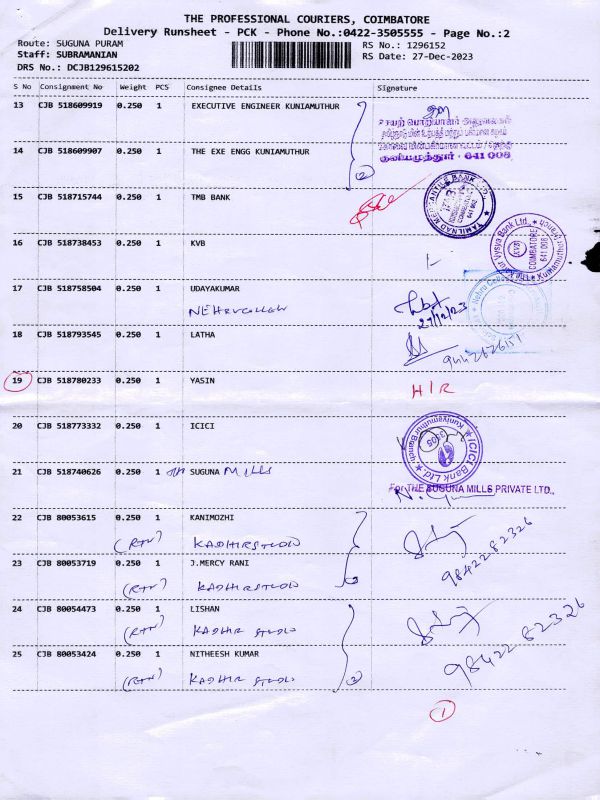 THE PROFESSIONAL COURIERS, COIMBATORE
Delivery Runsheet - PCK - Phone No.:0422-3505555 - Page No.:2
Route: SUGUNA PURAM
RS No.: 1296152
Staff: SUBRAMANIAN
RS Date: 27-Dec-2023
DRS No.: DCJB129615202
S No Consignment No Weight PCS Consignee Details Signature
13 CJB 518609919 0.250 1 EXECUTIVE ENGINEER KUNIAMUTHUR
குனியமுத்தூர் - 641 008
14 CJB 518609907 0.250 1 THE EXE ENGG KUNIAMUTHUR
2
15 CJB 518715744 0.250 1 TMB BANK
TAMILNAD MERCANTILE BANK LTD.,
16 CJB 518738453 0.250 1 KVB
Vysya Bank Ltd.
COIMBATORE
641 008
17 CJB 518758504 0.250 1 UDAYAKUMAR
27/12/23
18 CJB 518793545 0.250 1 LATHA
19 CJB 518780233 0.250 1 YASIN H/R
20 CJB 518773332 0.250 1 ICICI
ICICI Bank Ltd
21 CJB 518740626 0.250 1 SUGUNA MILLS
For THE SUGUNA MILLS PRIVATE LTD.,
22 CJB 80053615 0.250 1 KANIMOZHI
(RTN) KADHIR STUDIO
9842282326
23 CJB 80053719 0.250 1 J.MERCY RANI
(RTN) KADHIR STUDIO
24 CJB 80054473 0.250 1 LISHAN
(RTN) KADHIR STUDIO
9842282326
25 CJB 80053424 0.250 1 NITHEESH KUMAR
(RTN) KADHIR STUDIO
2
1